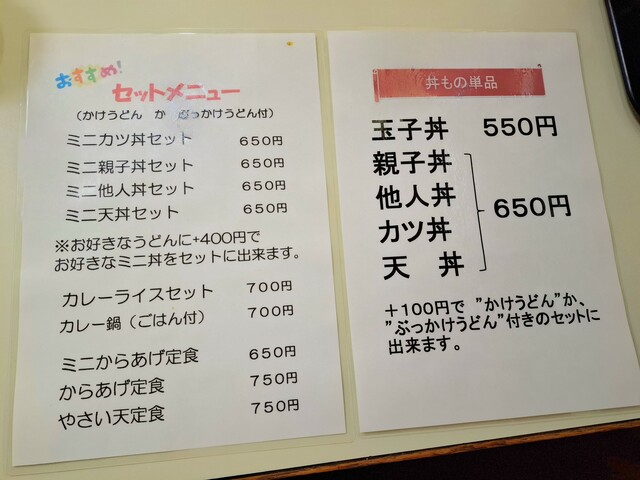 おすすめ!
セットメニュー
(かけうどん か ぶっかけうどん付)
ミニカツ丼セット 650円
ミニ親子丼セット 650円
ミニ他人丼セット 650円
ミニ天丼セット 650円
※お好きなうどんに+400円で
お好きなミニ丼をセットに出来ます。
カレーライスセット 700円
カレー鍋(ごはん付) 700円
ミニからあげ定食 650円
からあげ定食 750円
やさい天定食 750円
丼もの単品
玉子丼 550円
親子丼
他人丼
カツ丼
天 丼
650円
+100円で "かけうどん"か、
"ぶっかけうどん"付きのセットに
出来ます。